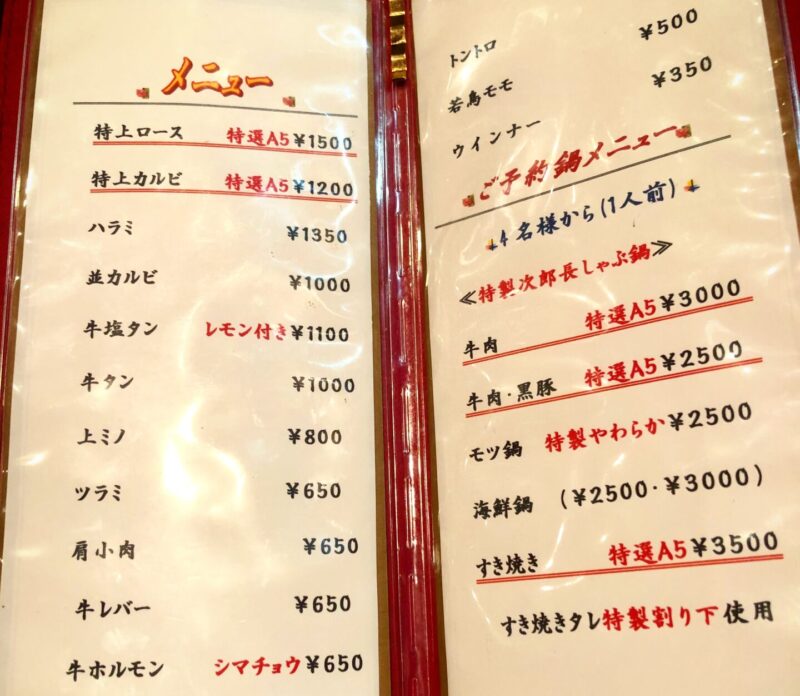 メニュー
特上ロース 特選A5¥1500
特上カルビ 特選A5¥1200
ハラミ ¥1350
並カルビ ¥1000
牛塩タン レモン付き¥1100
牛タン ¥1000
上ミノ ¥800
ツラミ ¥650
肩小肉 ¥650
牛レバー ¥650
牛ホルモン シマチョウ¥650
トントロ ¥500
若鳥モモ ¥350
ウインナー
ご予約鍋メニュー
4名様から(1人前)
≪特製次郎長しゃぶ鍋≫
牛肉 特選A5¥3000
牛肉・黒豚 特選A5¥2500
モツ鍋 特製やわらか¥2500
海鮮鍋 (¥2500・¥3000)
すき焼き 特選A5¥3500
すき焼きタレ特製割り下使用